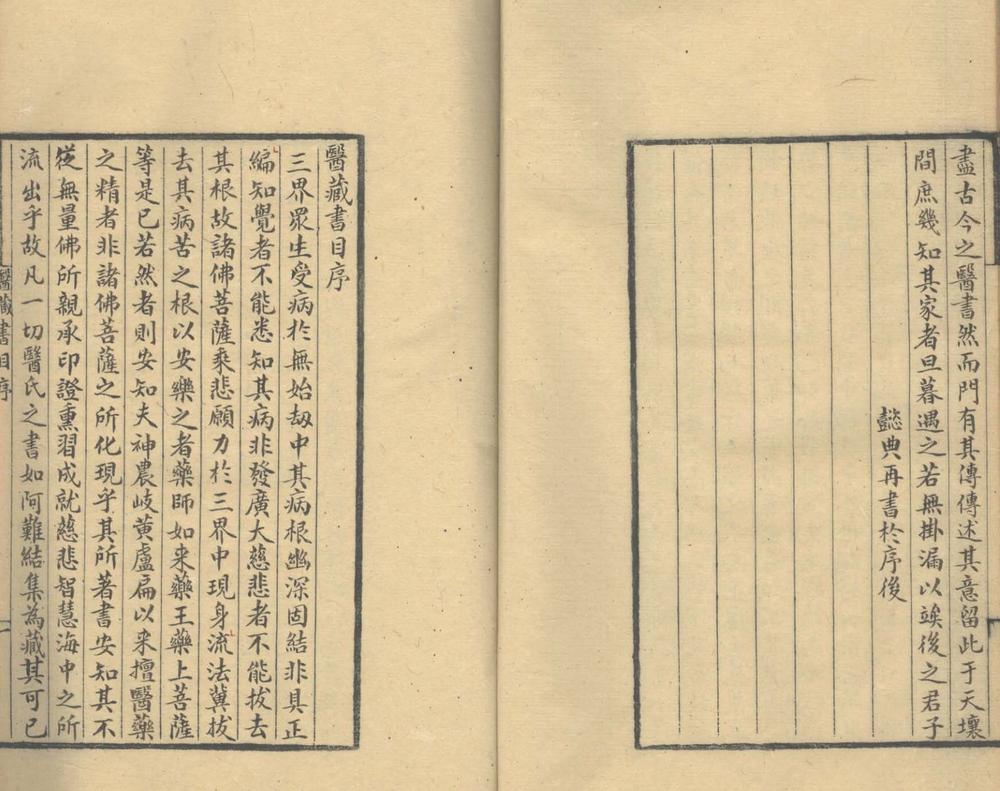 盡古今之醫書然而門有其傳傳述其意留此于天壤
間庶幾知其家者旦暮遇之若無掛漏以竢後之君子
懿典再書於序後
醫藏書目序
三界眾生受病於無始劫中其病根幽深固結非具正
徧知覺者不能悉知其病非發廣大慈悲者不能拔去
其根故諸佛菩薩乘悲願力於三界中現身流法冀拔
去其病苦之根以安樂之者藥師如来藥王藥上菩薩
等是已若然者則安知夫神農岐黃盧扁以来擅醫藥
之精者非諸佛菩薩之所化現乎其所著書安知其不
從無量佛所親承印證熏習成就慈悲智慧海中之所
流出乎故凡一切醫氏之書如阿難結集為藏其可已
醫藏書目序
一